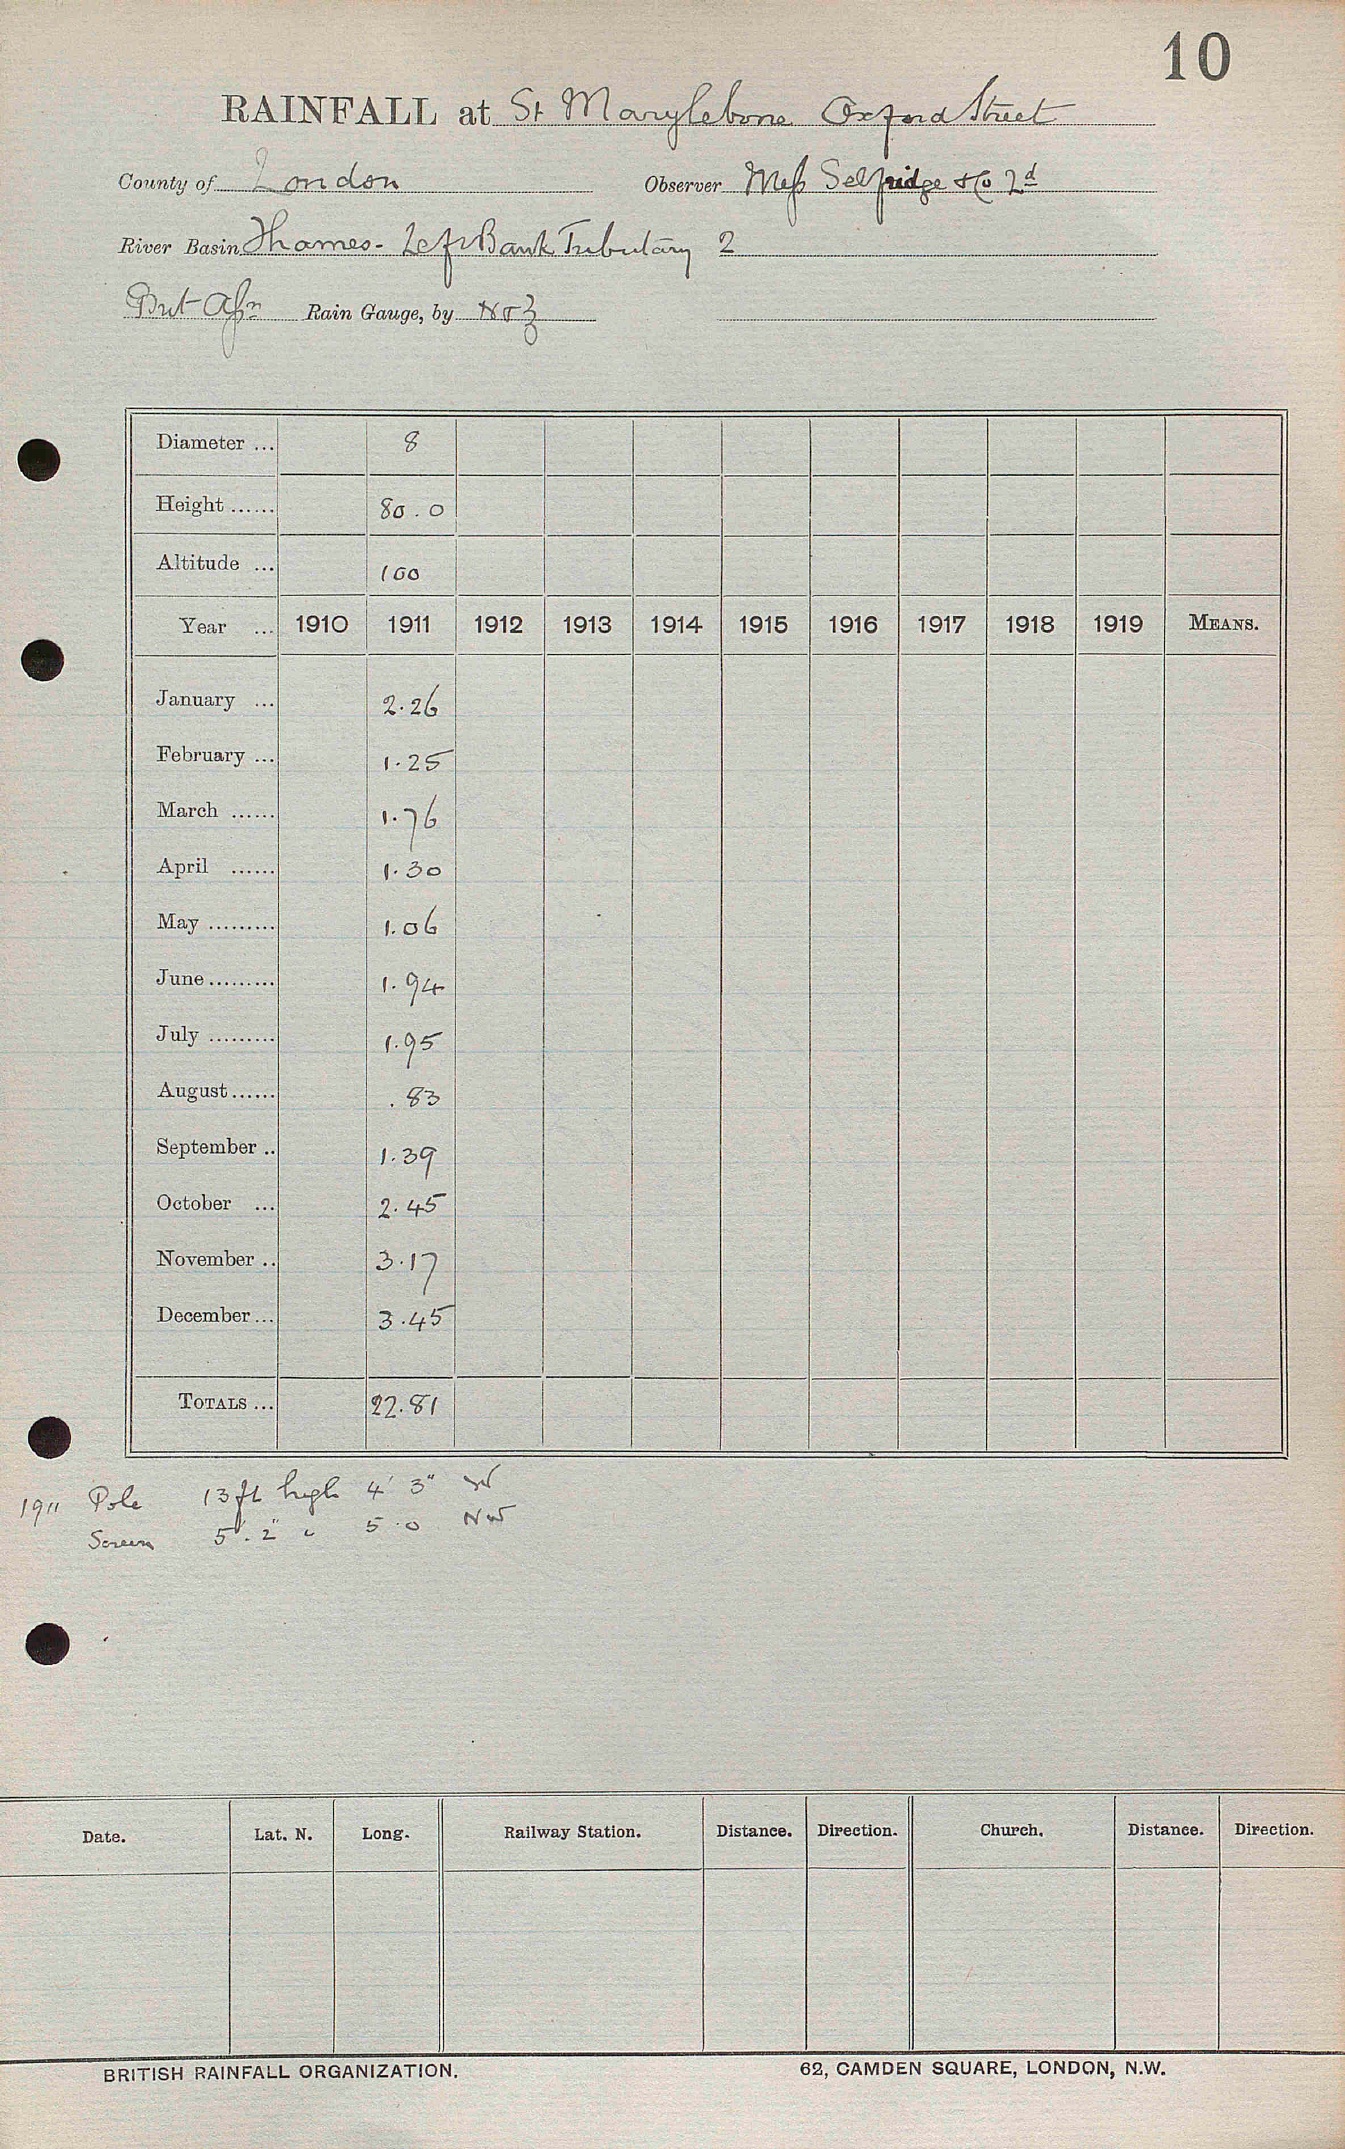 10
RAINFALL at St Marylebone Oxford Street
County of London Observer Mess Selfridge & Co Ld
River Basin Thames - Left Bank Tributary 2
Rain Gauge, by N & Z
Diameter ... 8
Height ...... 80.0
Altitude ... 100
Year ... 1910 1911 1912 1913 1914 1915 1916 1917 1918 1919 MEANS.
January ... 2.26
February ... 1.25
March ...... 1.76
April ...... 1.30
May ......... 1.06
June ......... 1.94
July ......... 1.95
August ...... .83
September .. 1.39
October ... 2.45
November .. 3.17
December ... 3.45
TOTALS ... 22.81
1911 Pole 13ft high 4' 3" W
Screen 5'. 2" " 5.0 NW
Date. Lat. N. Long. Railway Station. Distance. Direction. Church. Distance. Direction.
BRITISH RAINFALL ORGANIZATION. 62, CAMDEN SQUARE, LONDON, N.W.